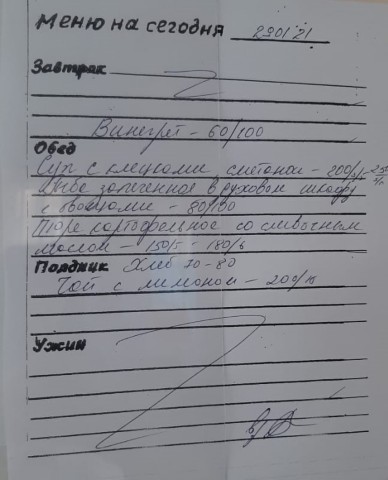 Меню на сегодня 29 01 21
Завтрак
Винегрет - 60/100
Обед
Суп с клецками, сметаной - 200/5-250/
запеченное в духовом шкафу
с овощами - 80/100
Пюре картофельное со сливочным
маслом - 150/5 - 180/6
Полдник Хлеб 70-80
Чай с лимоном - 200/
Ужин